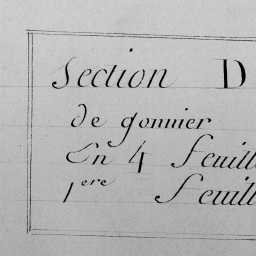 Section D
de gonnier
En 4 feuill
1ere feuill